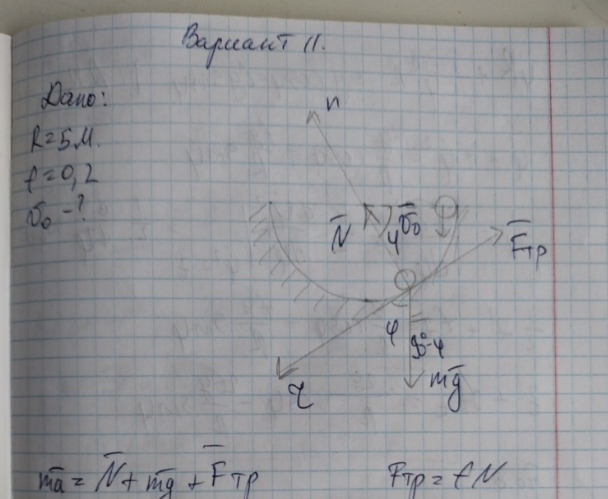 Вариант 11.
Дано:
R=5м.
f=0,2
v̅₀ -?
n
N̅
φ
v̅₀
F̅тр
φ
90°-φ
mg̅
τ
ma̅ = N̅ + mg̅ + F̅тр
Fтр = fN